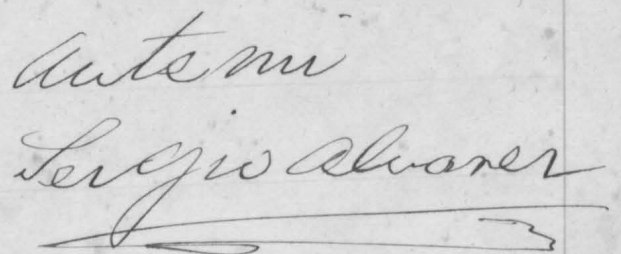 Ante mi
Sergio Alvarez